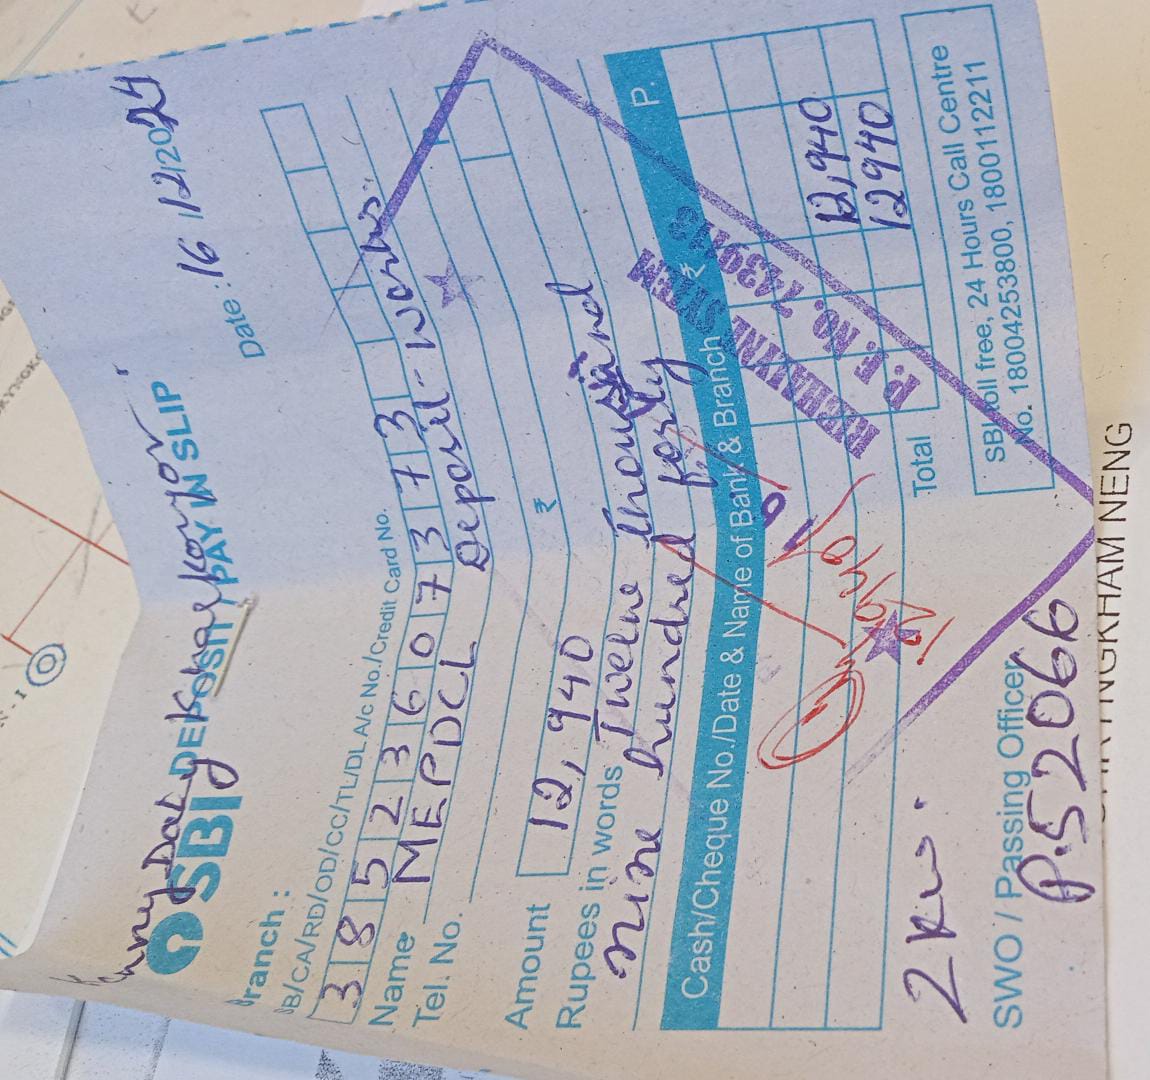 SBI DEPOSIT / PAY IN SLIP
Branch :
Date : 16 /12/2024
SB/CA/RD/OD/CC/TL/DL A/c No./Credit Card No.
3 8 5 2 3 6 0 7 3 7 3
Name MEPDCL Deposit-Works.
Tel. No.
Amount 12,940 ₹
Rupees in words Twelve thousand
nine hundred forty
Cash/Cheque No./Date & Name of Bank & Branch ₹ P.
12,940
Total 12940
P. F. No.
2 Kw.
SWO / Passing Officer
SBI toll free, 24 Hours Call Centre
No. 18004253800, 1800112211
P.52066
NENG